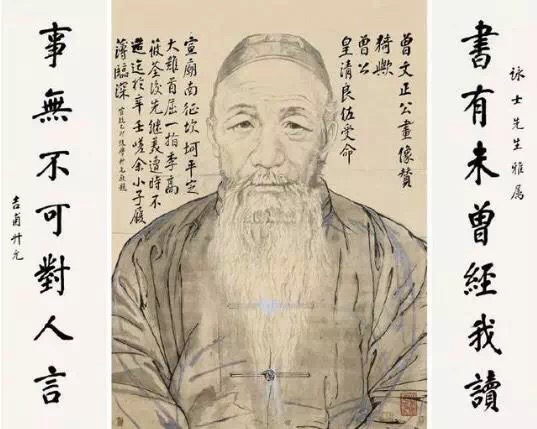 詠士先生雅属
書有未曾經我讀
曾文正公畫像贊
猗歟
曾公
皇清良佐受命
宣廟南征坎坷平定
大難首屈一指季高
筱荃後先继美遭時不
造迄於辛壬嗟余小子履
薄臨深
事無不可對人言
吉甫升允